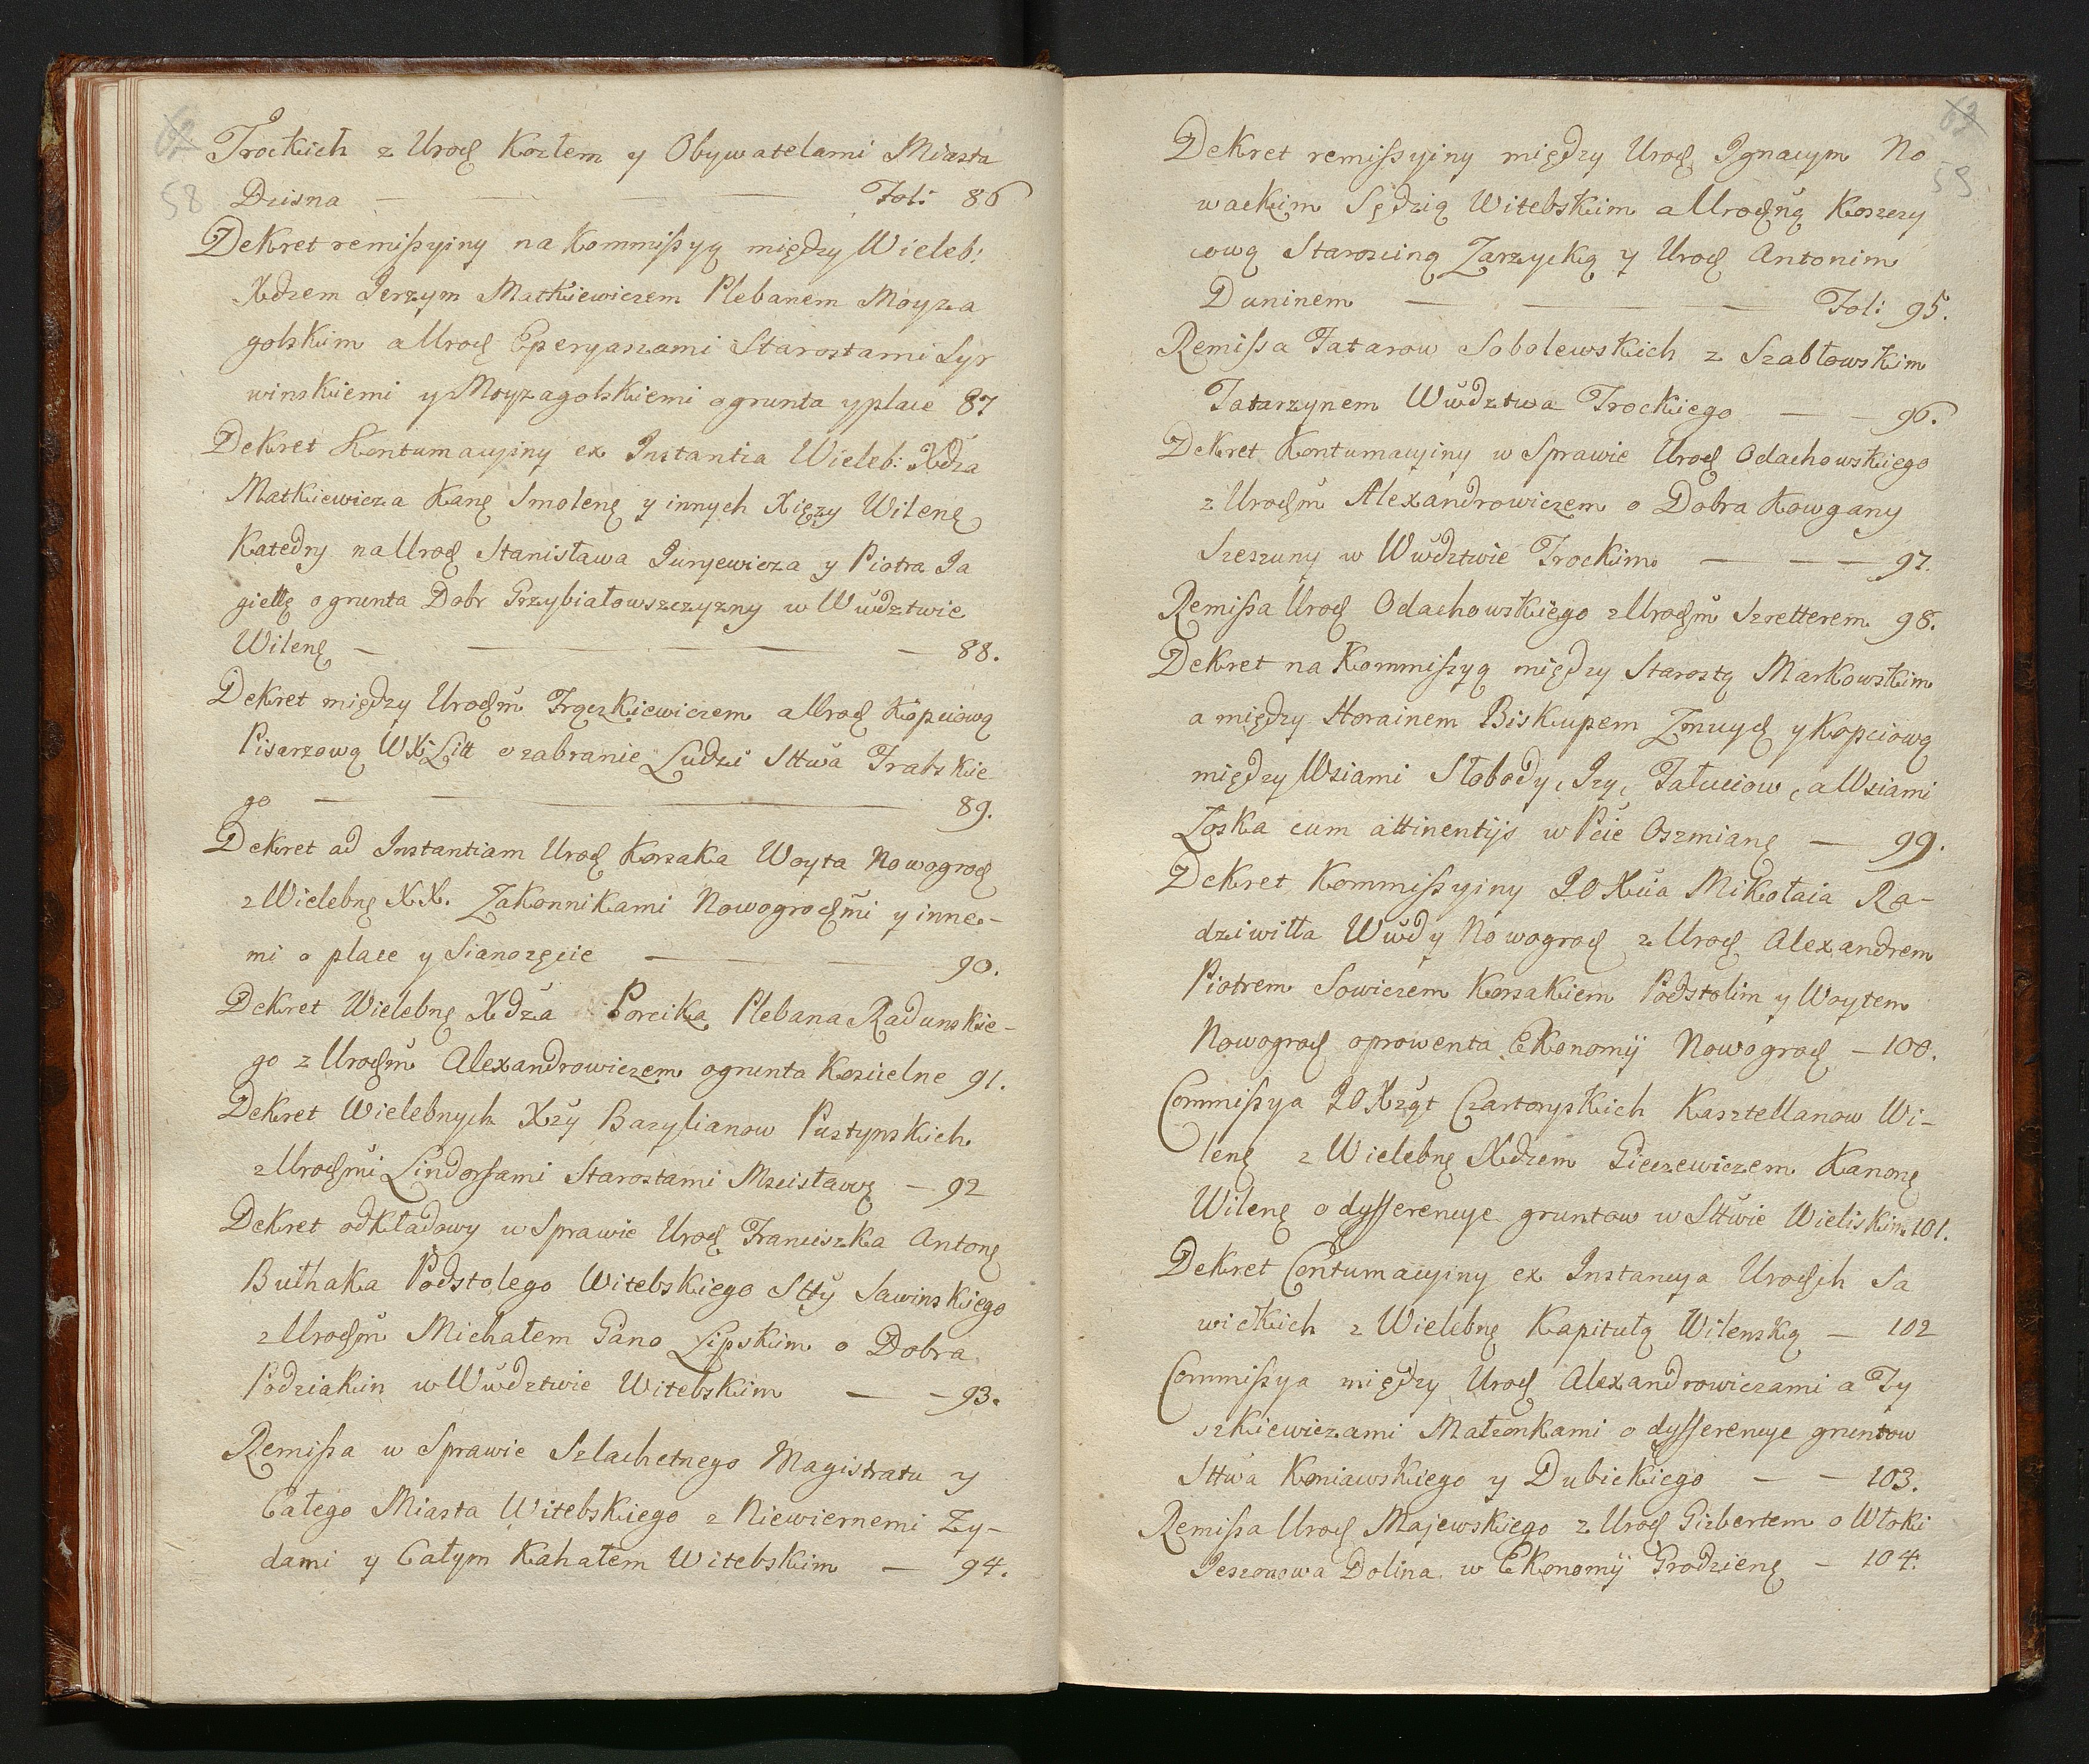 62
58
Trockich z Urod Kozłem y Obywatelami Miasta
Dzisna — — — Fol: 86
Dekret remissyiny na Kommissyą między Wieleb:
Xdzem Jerzym Matkiewiczem Plebanem Moyza
golskim a Urod Eperyaszami Starostami Syr
winskiemi y Moyzagolskiemi o grunta y place 87
Dekret Kontumacyiny ex Instantia Wieleb: Xdza
Matkiewicza Kanę Smolenę y innych Xięzy Wilenę
Katedry na Urod Stanisława Juryewicza y Piotra Ja
giełłę o grunta Dobr Przybiałowszczyzny w Wwdztwie
Wilenę — — — — — — 88.
Dekret między Urodm Frączkiewiczem a Urod Kopciową
Pisarzową WXLitt o zabranie Ludzi Sttwa Trabskie
go — — — 89.
Dekret ad Instantiam Urod Korsaka Woyta Nowogrod
z Wielebnę XX. Zakonnikami Nowogrodmi y inne-
mi o place y Sianozęcie — — — 90.
Dekret Wielebnę Xdza Porcika Plebana Radunskie-
go z Urodm Alexandrowiczem o grunta Koscielne 91.
Dekret Wielebnych Xzy Bazylianow Pustynskich
z Urodmi Lindorfami Starostami Mscisławę — 92
Dekret odkładowy w Sprawie Urod Franciszka Antonę
Bułhaka Podstolego Witebskiego Stty Sawinskiego
z Urodm Michałem Gano Lipskim o Dobra
Podziakin w Wwdztwie Witebskim — — 93.
Remissa w Sprawie Szlachetnego Magistratu y
Całego Miasta Witebskiego z Niewiernemi Zy-
dami y Całym Kahałem Witebskim — 94.
63
59
Dekret remissyiny między Urod Ignacym No
wackim Sędzią Witebskim a Urodną Koszczy
cową Starosciną Zarzycką y Urod Antonim
Duninem — — — Fol: 95.
Remissa Tatarow Sobolewskich z Szabłowskim
Tatarzynem Wwdztwa Trockiego — — 96.
Dekret Kontumacyiny w Sprawie Urod Odachowskiego
z Urodm Alexandrowiczem o Dobra Kowgany
Szeszuny w Wwdztwie Trockim — — — 97.
Remissa Urod Odachowskiego z Urodm Szretterem 98.
Dekret na Kommissyą między Starostą Markowskim
a między Horainem Biskupem Zmuyd y Kopciową
między Wsiami Słobody, Izy, Tałuciow, a Wsiami
Zoska cum attinentijs w Pcie Oszmianę — 99.
Dekret Kommissyiny JO Xcia Mikołaia Ra-
dziwiłła Wwdy Nowogrod z Urod Alexandrem
Piotrem Sowiczem Korsakiem Podstolim y Woytem
Nowogrod o prowenta Ekonomij Nowogrod — 100.
Commissya JO Xząt Czartoryskich Kasztellanow Wi-
lenę z Wielebnę Xdzem Gieczewiczem Kanonę
Wilenę o dyfferencye gruntow w Sttwie Wieliskim 101.
Dekret Contumacyiny ex Instancya Urodch Sa
wickich z Wielebnę Kapitułą Wilenską — 102
Commissya między Urod Alexandrowiczami a Ty
szkiewiczami Małzonkami o dyfferencye gruntow
Sttwa Koniawskiego y Dubickiego — — 103.
Remissa Urod Majewskiego z Urod Gizbertem o Włoki
Jeszonowa Dolina w Ekonomij Grodzienę — 104.